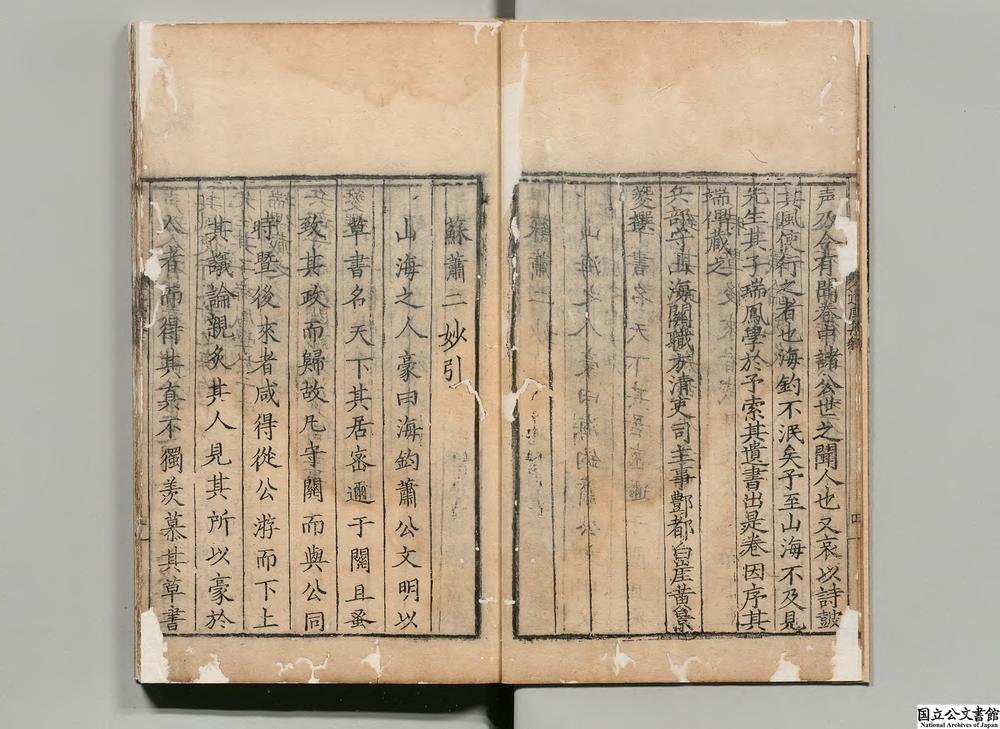 声乃今有聞春申諸公世之聞人也又衮以詩鼓
其風使行之者也海釣不泯矣予至山海不及見
先生其子瑞鳳學於予索其遺書出是卷因序其
端俾藏之
兵部守山海關職方清吏司主事酆都白厓黄景
夔撰
蘇蕭二妙引
山海之人豪曰海釣蕭公文明以
草書名天下其居密邇于關且蚤
致其政而歸故凡守關而與公同
時暨後來者咸得從公游而下上
其議論親炙其人見其所以豪於
人者而得其真不獨羡慕其草書
国立公文書館
National Archives of Japan